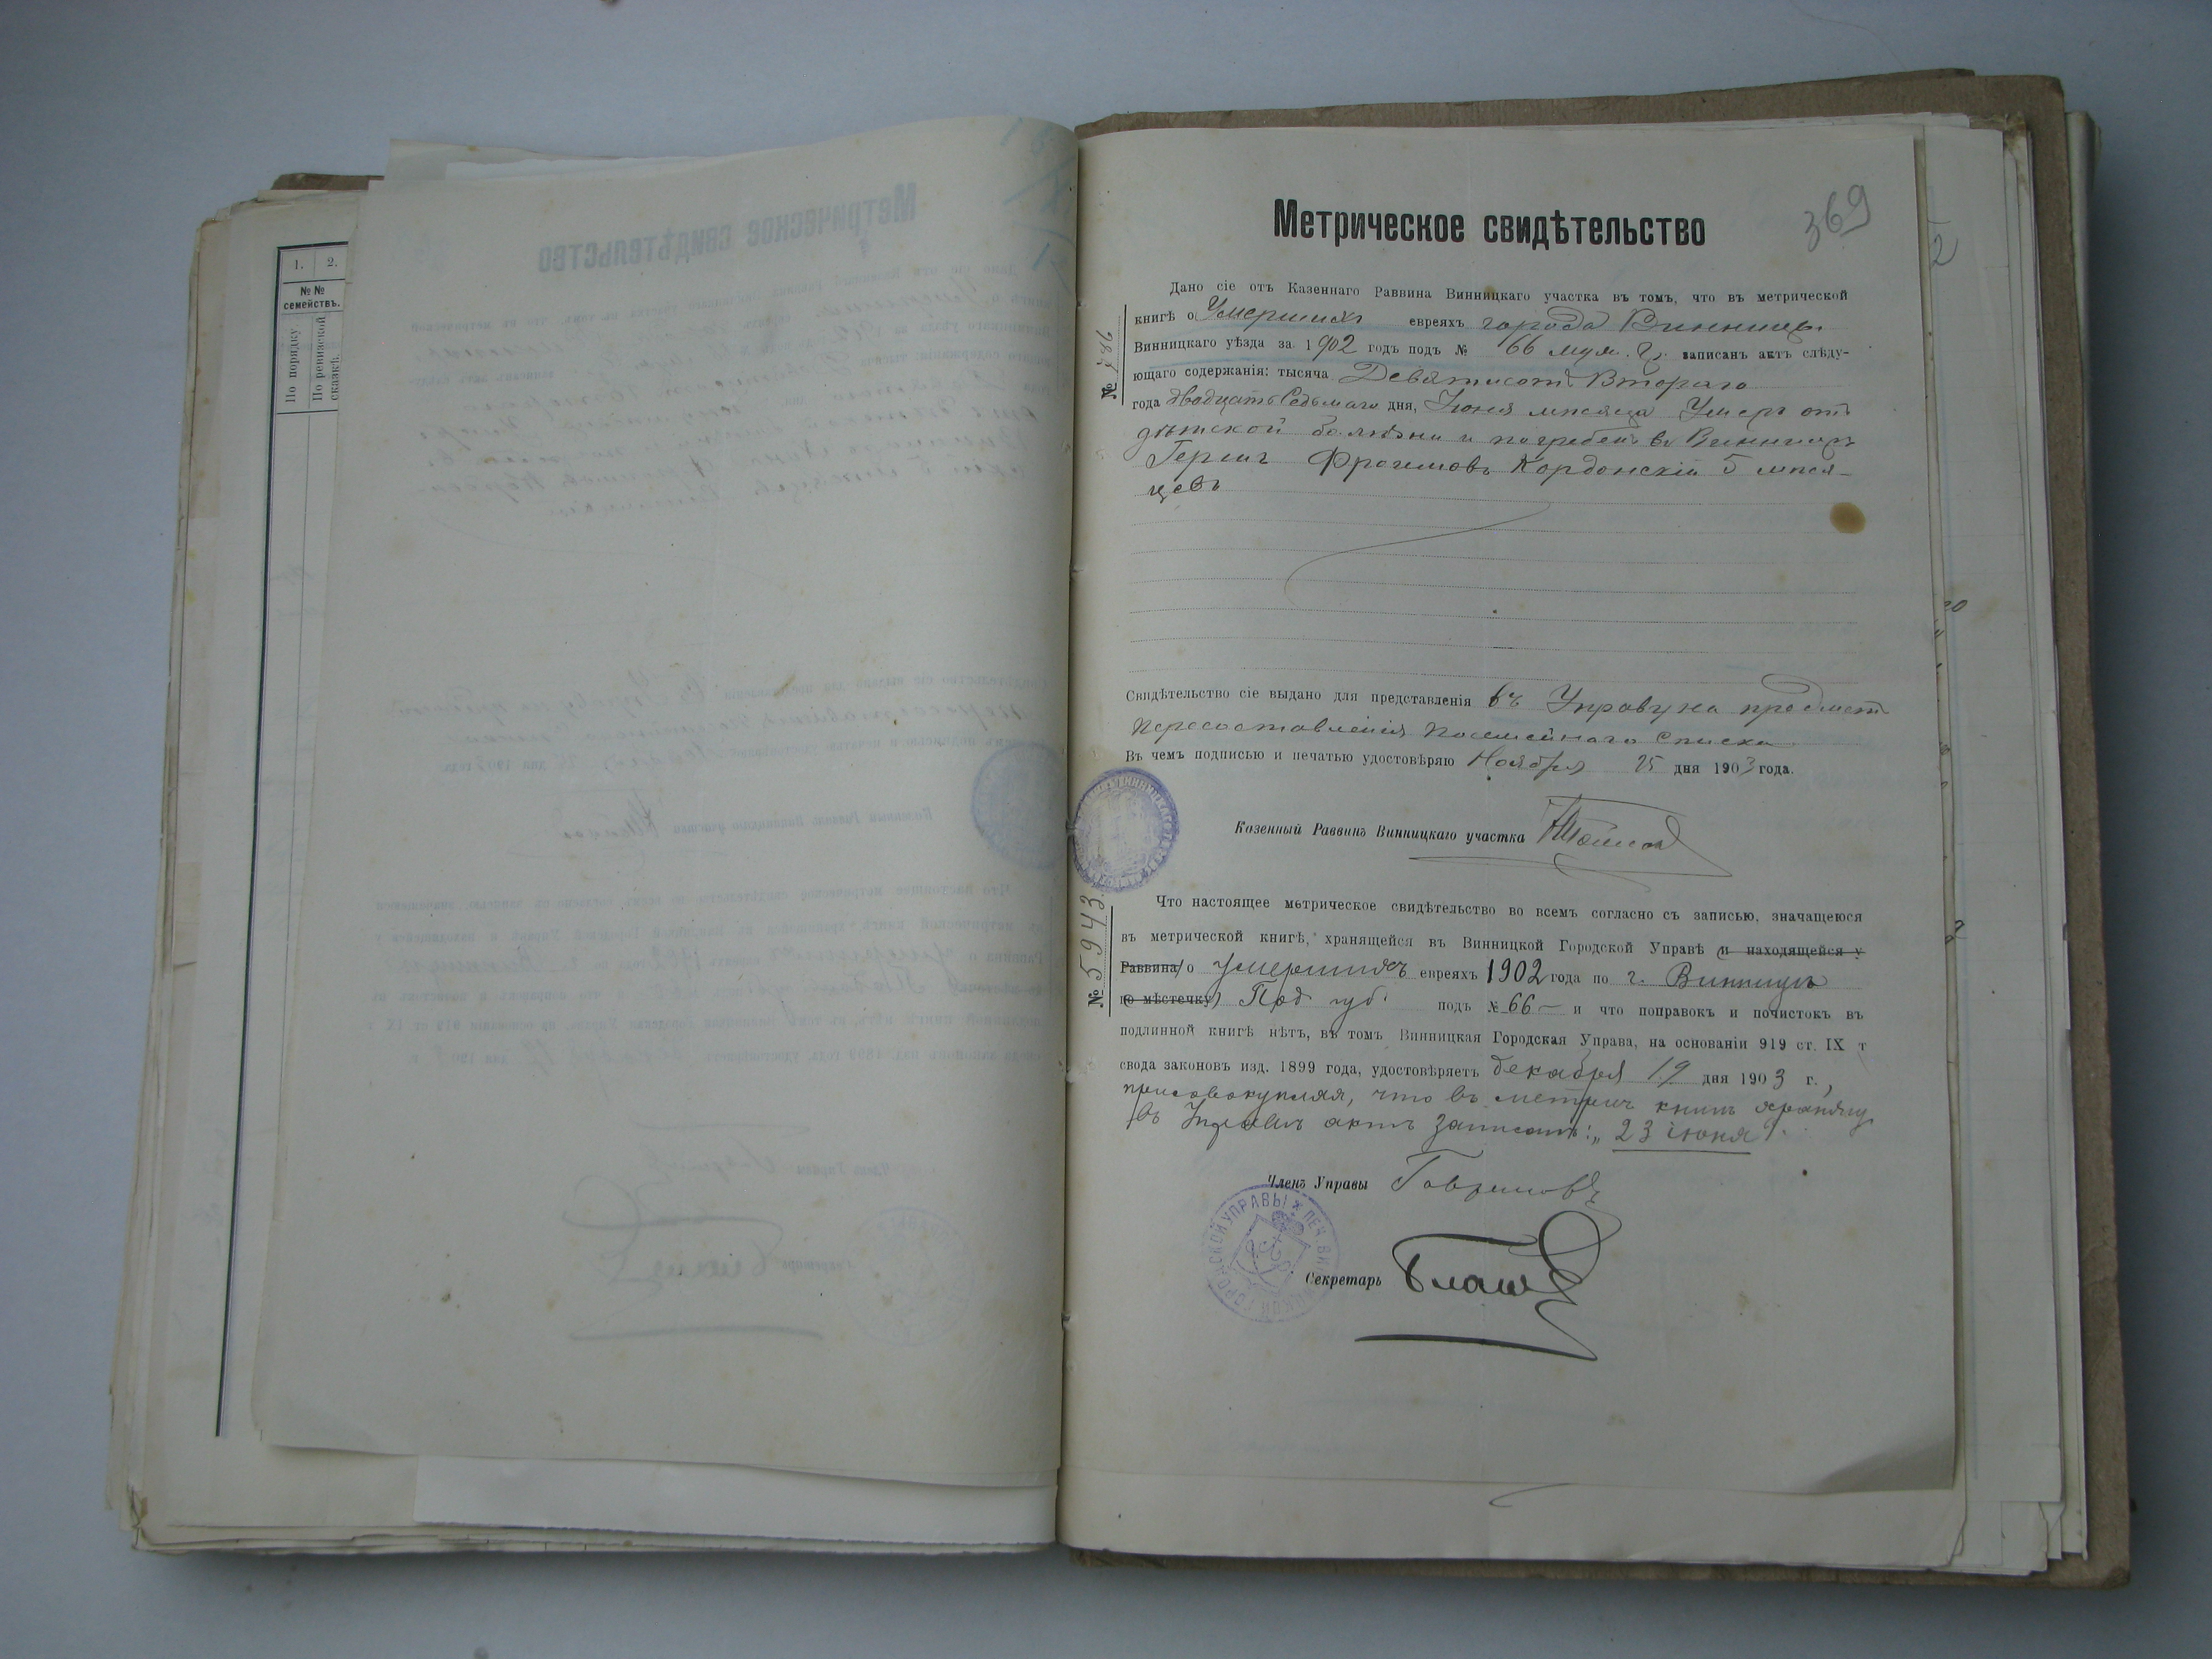 1.
2.
№№
семействъ.
По порядку.
По ревизской
сказкѣ.
369
Метрическое свидѣтельство
Дано сіе отъ Казеннаго Раввина Винницкаго участка въ томъ, что въ метрической
книгѣ о Умершихъ евреяхъ города Винницы
Винницкаго уѣзда за 1902 годъ подъ № 66 муж. записанъ актъ слѣду-
ющаго содержанія: тысяча Девятисотъ Второго
года двадцать Седьмаго дня, Іюня мѣсяца Умеръ отъ
дѣтской болѣзни и погребенъ въ Винницѣ
Гершъ Фроимовъ Кордонскій 5 мѣся-
цевъ
Свидѣтельство сіе выдано для представленія въ Управу на предметъ
пересоставленія посемейнаго списка
Въ чемъ подписью и печатью удостовѣряю Ноября 25 дня 1903 года.
Казенный Раввинъ Винницкаго участка
№ 5943.
Что настоящее метрическое свидѣтельство во всемъ согласно съ записью, значащеюся
въ метрической книгѣ, хранящейся въ Винницкой Городской Управѣ (и находящейся у
Раввина) о умершихъ евреяхъ 1902 года по г. Винницѣ
(о мѣстечку) Под. губ. подъ № 66 — и что поправокъ и почистокъ въ
подлинной книгѣ нѣтъ, въ томъ Винницкая Городская Управа, на основаніи 919 ст. IX т
свода законовъ изд. 1899 года, удостовѣряетъ декабря 19 дня 1903 г.,
присовокупляя, что въ метрич книгѣ хранящ
въ Управѣ актъ записанъ: „23 іюня".
Членъ Управы Гавриловъ
ГОРОДСКОЙ УПРАВЫ * ПЕЧ. ВИННИЦКОЙ
Секретарь